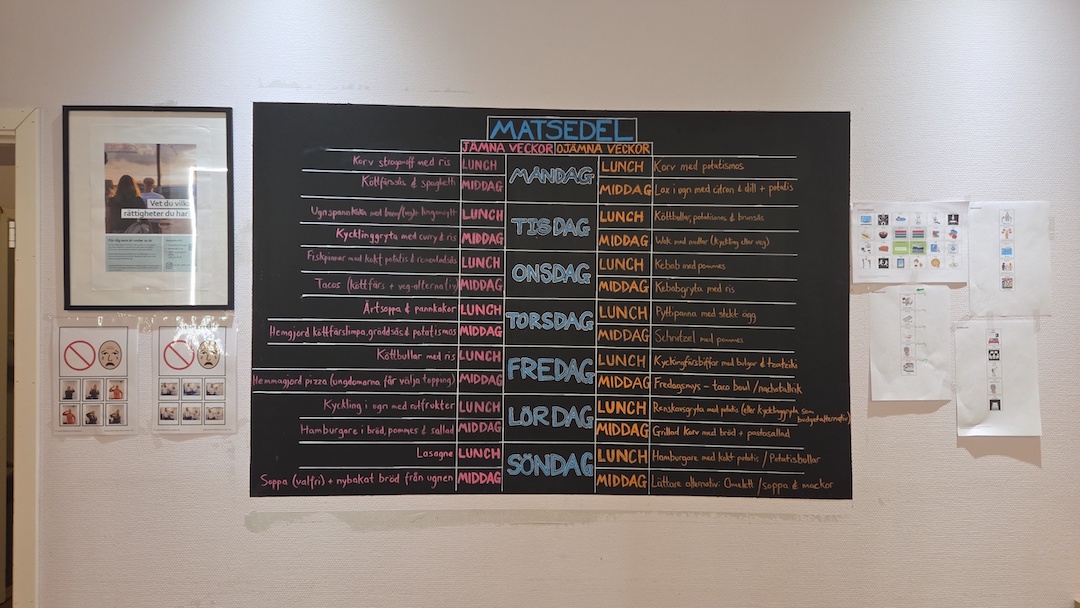 Vet du vilka
rättigheter du har?
MATSEDEL
JÄMNA VECKOR OJÄMNA VECKOR
Korv stroganoff med ris LUNCH MÅNDAG LUNCH Korv med potatismos
Köttfärssås & spaghetti MIDDAG MIDDAG Lax i ugn med citron & dill + potatis
Ugnspannkaka med LUNCH TISDAG LUNCH Köttbullar, potatismos & brunsås
Kycklinggryta med curry & ris MIDDAG MIDDAG Wok med nudlar (kyckling eller veg)
Fiskpinnar med kokt potatis & remouladsås LUNCH ONSDAG LUNCH Kebab med pommes
Tacos (köttfärs + veg-alternativ) MIDDAG MIDDAG Kebabgryta med ris
Ärtsoppa & pannkakor LUNCH TORSDAG LUNCH Pyttipanna med stekt ägg
Hemgjord köttfärslimpa, gräddsås & potatismos MIDDAG MIDDAG Schnitzel med pommes
Köttbullar med ris LUNCH FREDAG LUNCH Kycklingfärsbiffar med bulgur & tzatziki
Hemmagjord pizza (ungdomarna får välja topping) MIDDAG MIDDAG Fredagsmys – taco bowl / nachotallrik
Kyckling i ugn med rotfrukter LUNCH LÖRDAG LUNCH Renskavsgryta med potatis (eller kycklinggryta som budgetalternativ)
Hamburgare i bröd, pommes & sallad MIDDAG MIDDAG Grillad korv med bröd + pastasallad
Lasagne LUNCH SÖNDAG LUNCH Hamburgare med kokt potatis / Potatisbullar
Soppa (valfri) + nybakat bröd från ugnen MIDDAG MIDDAG Lättare alternativ: Omelett / soppa & mackor